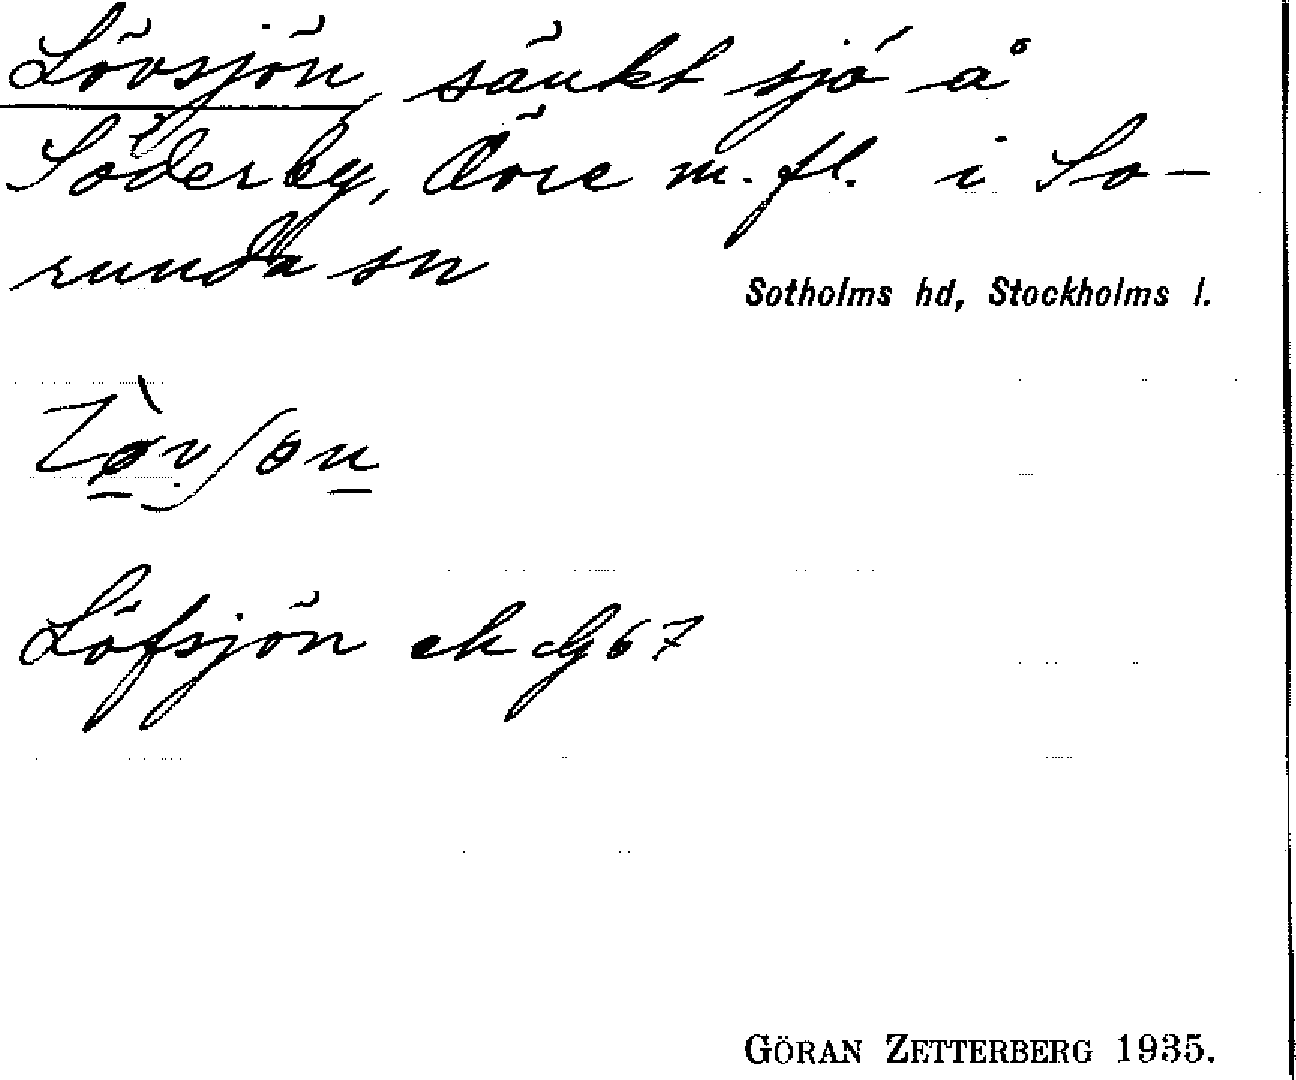 Lövsjön, sänkt sjö å
Söderby, Övre m. fl. i So-
runda sn
Sotholms hd, Stockholms l.
Löfsjön ek
GÖRAN ZETTERBERG 1935.